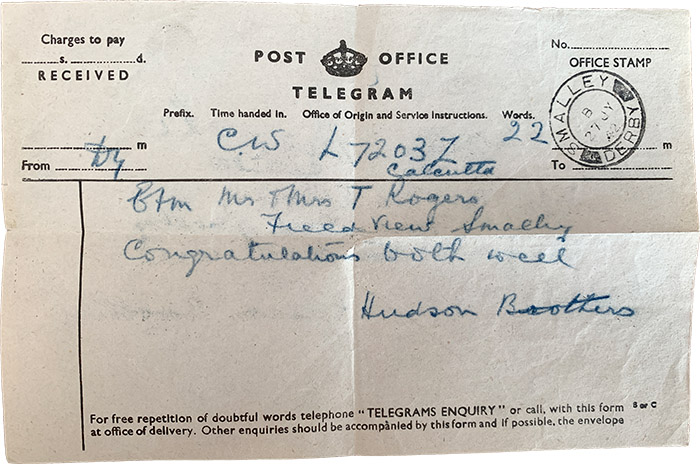 Charges to pay
s. d.
RECEIVED
POST OFFICE
TELEGRAM
No.
OFFICE STAMP
SMALLEY
DERBY
Prefix. Time handed in. Office of Origin and Service Instructions. Words.
m
C.W L7203Z 22
m
From Dy
Calcutta
To
Mr & Mrs T Rogers
View Smalley
Congratulations both well
Hudson Brothers
For free repetition of doubtful words telephone "TELEGRAMS ENQUIRY" or call, with this form
B or C
at office of delivery. Other enquiries should be accompanied by this form and if possible, the envelope